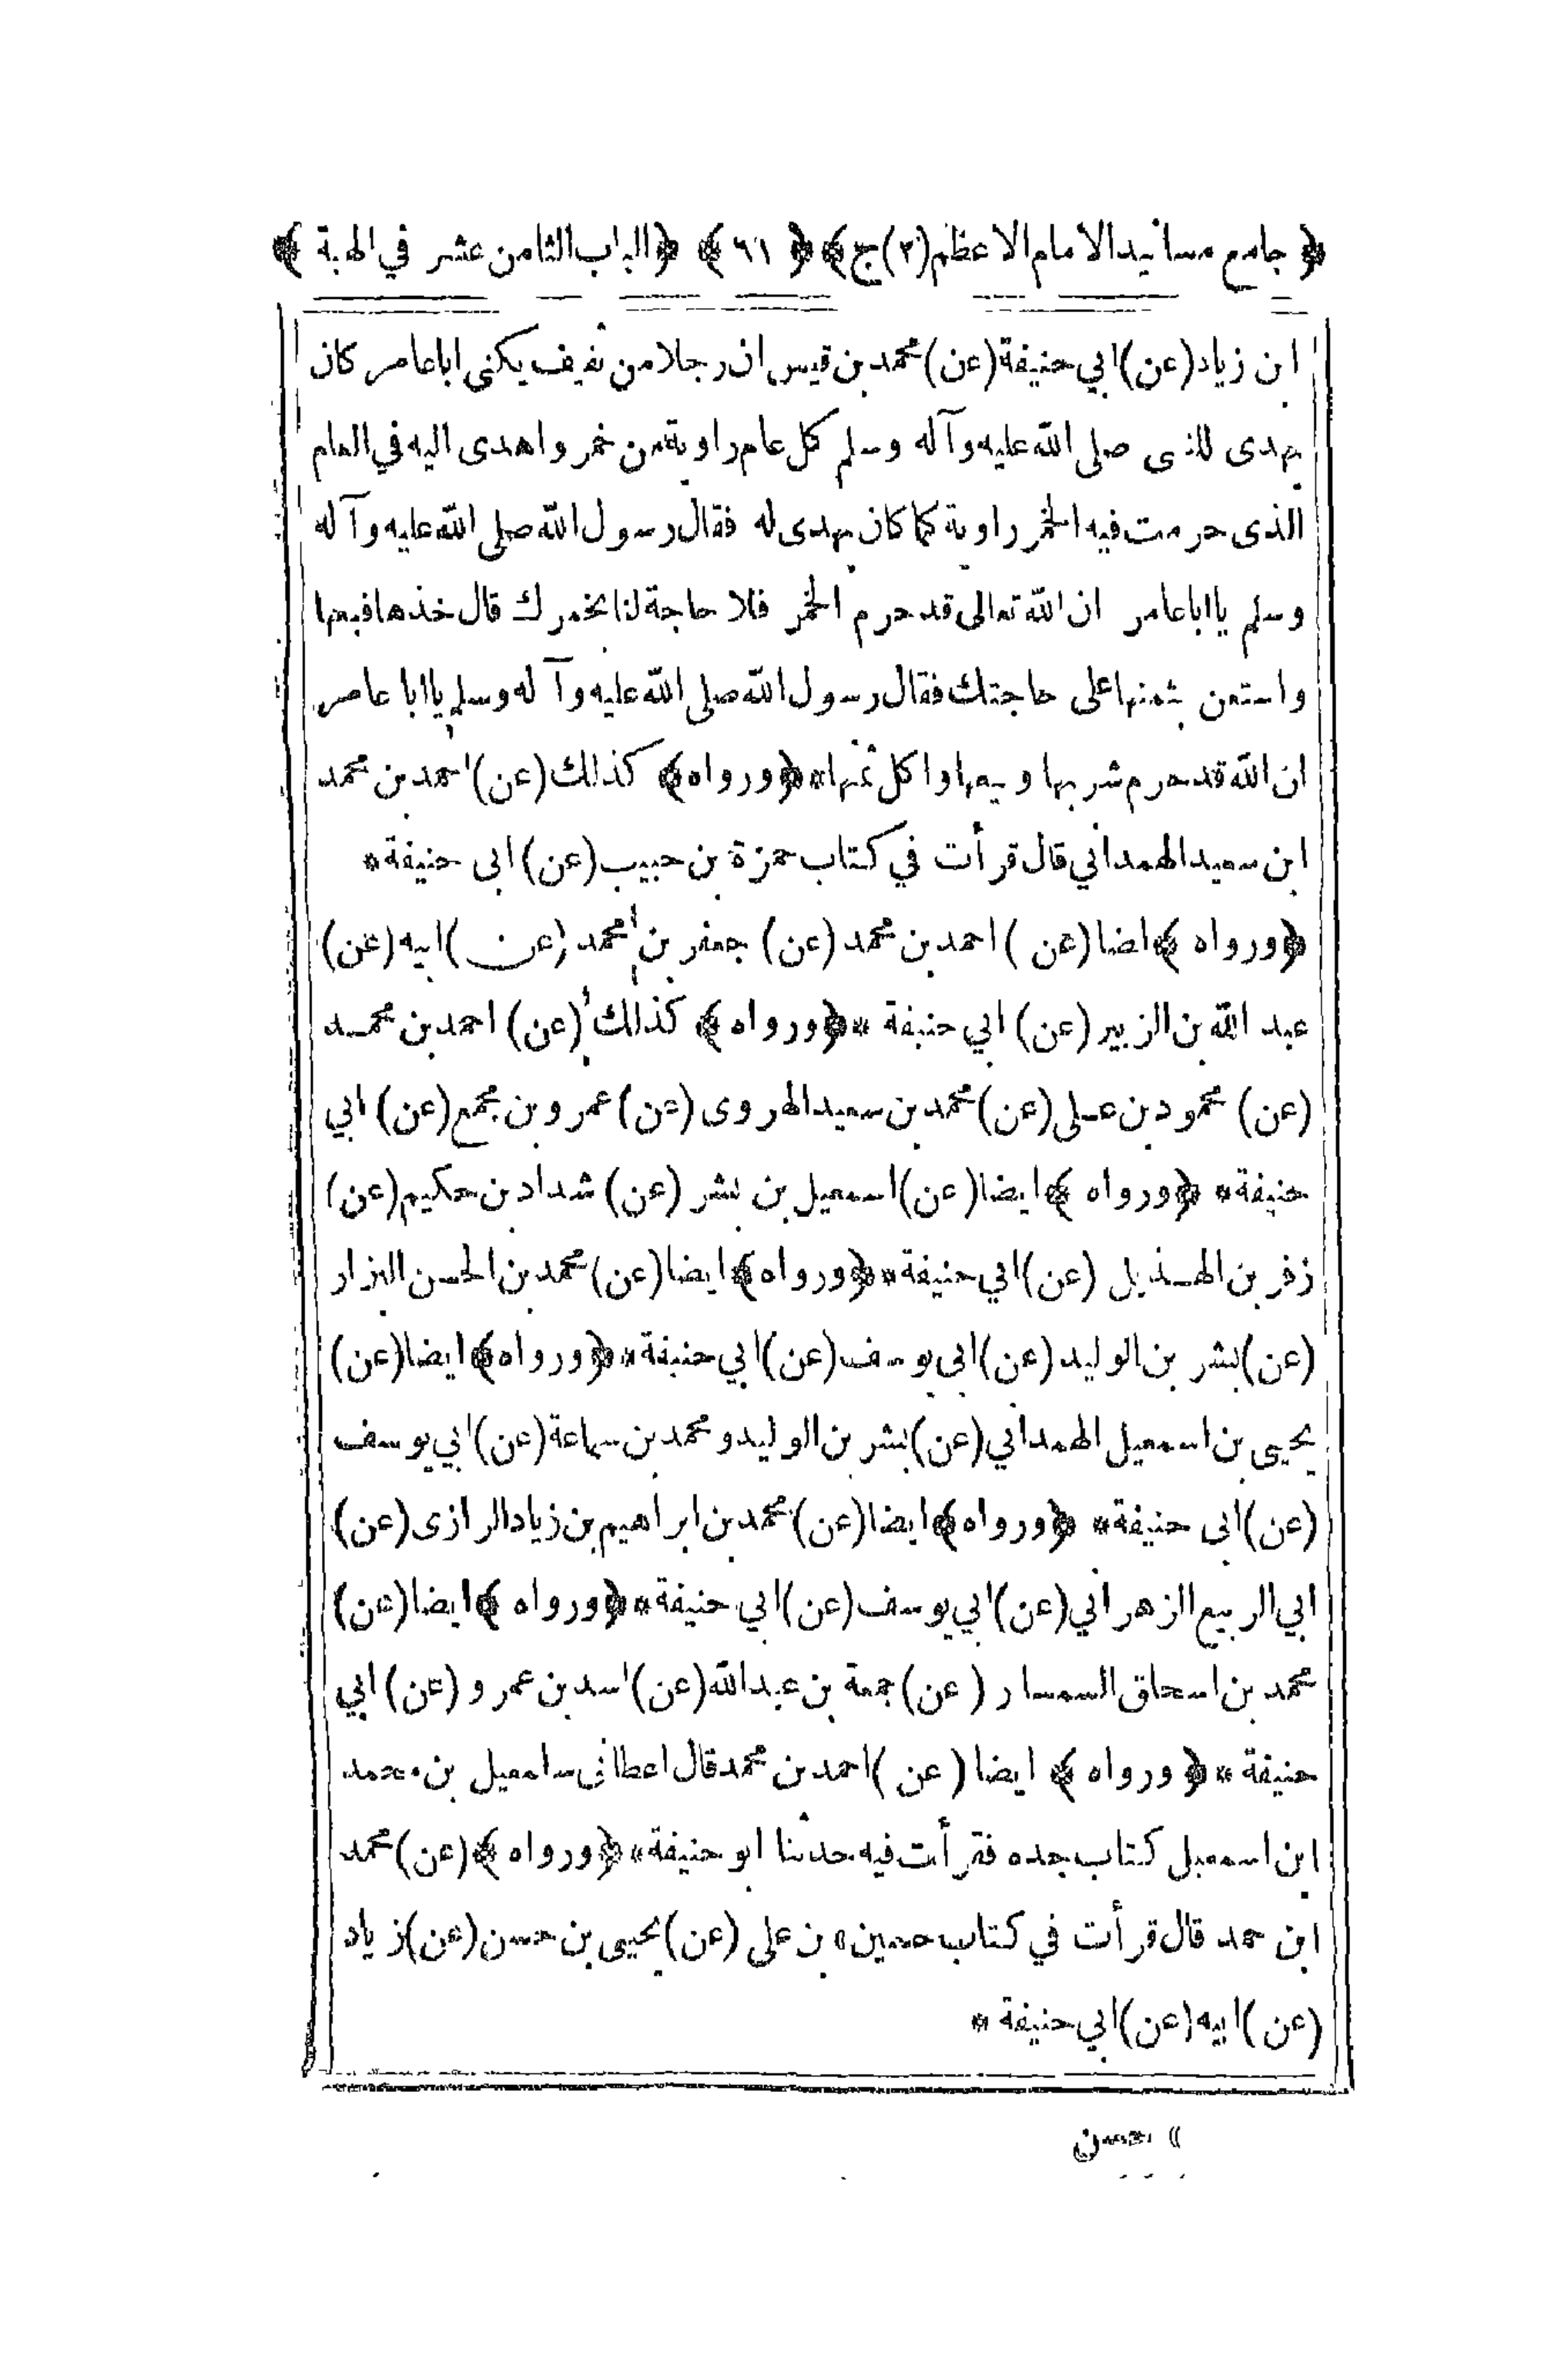 ﴿ جامع مسانيد الامام الاعظم (٢) ج ﴾ ﴿ ٦١ ﴾ ﴿ الباب الثامن عشر في الهبة ﴾
ابن زياد (عن) ابي حنيفة (عن) محمد بن قيس ان رجلا من ثقيف يكنى ابا عامر كان
يهدى للنبى صلى الله عليه وآله وسلم كل عام راوية من خمر واهدى اليه في العام
الذى حرمت فيه الخمر راوية كما كان يهدى له فقال رسول الله صلى الله عليه وآله
وسلم يا ابا عامر ان الله تعالى قد حرم الخمر فلا حاجة لنا بخمرك قال خذها فبعها
واستعن بثمنها على حاجتك فقال رسول الله صلى الله عليه وآله وسلم يا ابا عامر
ان الله قد حرم شربها وبيعها واكل ثمنها * ﴿ ورواه ﴾ كذلك (عن) احمد بن محمد
ابن سعيد الهمداني قال قرأت في كتاب حمزة بن حبيب (عن) ابى حنيفة *
﴿ ورواه ﴾ ايضا (عن) احمد بن محمد (عن) جعفر بن محمد (عن) ابيه (عن)
عبد الله بن الزبير (عن) ابي حنيفة * ﴿ ورواه ﴾ كذلك (عن) احمد بن محمد
(عن) محمود بن على (عن) محمد بن سعيد الهروى (عن) عمرو بن مجمع (عن) ابي
حنيفة * ﴿ ورواه ﴾ ايضا (عن) اسمعيل بن بشر (عن) شداد بن حكيم (عن)
زفر بن الهذيل (عن) ابي حنيفة * ﴿ ورواه ﴾ ايضا (عن) محمد بن الحسن البزار
(عن) بشر بن الوليد (عن) ابى يوسف (عن) ابي حنيفة * ﴿ ورواه ﴾ ايضا (عن)
يحيى بن اسمعيل الهمداني (عن) بشر بن الوليد ومحمد بن سماعة (عن) ابي يوسف
(عن) ابى حنيفة * ﴿ ورواه ﴾ ايضا (عن) محمد بن ابراهيم بن زياد الرازى (عن)
ابي الربيع الزهراني (عن) ابي يوسف (عن) ابي حنيفة * ﴿ ورواه ﴾ ايضا (عن)
محمد بن اسحاق السمسار (عن) جمعة بن عبد الله (عن) اسد بن عمرو (عن) ابي
حنيفة * ﴿ ورواه ﴾ ايضا (عن) احمد بن محمد قال اعطانى اسمعيل بن محمد
ابن اسمعيل كتاب جده فقرأت فيه حدثنا ابو حنيفة * ﴿ ورواه ﴾ (عن) محمد
ابن حمد قال قرأت في كتاب حسين» بن على (عن) يحيى بن حسن (عن) زياد
(عن) ابيه (عن) ابي حنيفة *
» حسن